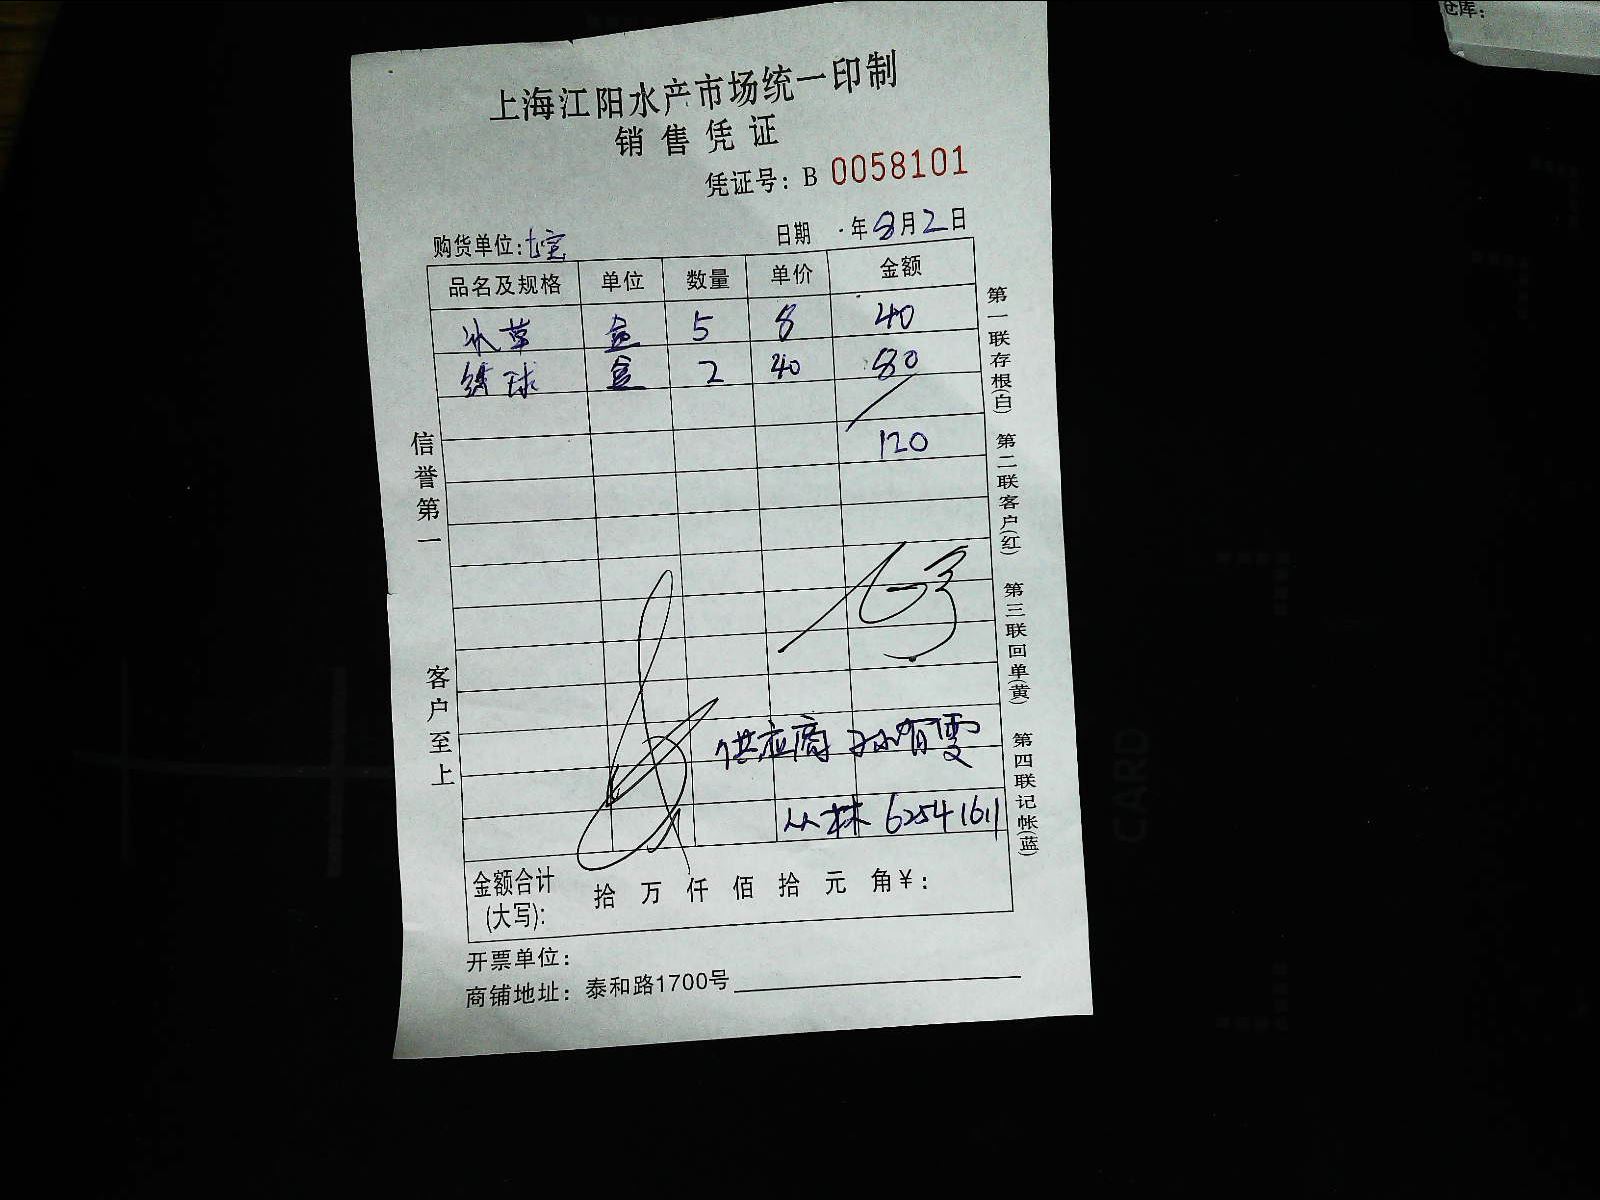 仓库：
上海江阳水产市场统一印制
销售凭证
凭证号：B 0058101
购货单位：七宝 日期 年8月2日
品名及规格 单位 数量 单价 金额
冰草 盒 5 8 40
绣球 盒 2 40 80
120
信誉第一
客户至上
第一联存根(白) 第二联客户(红) 第三联回单(黄) 第四联记帐(蓝)
供应商 孙有雯
从林 62541611
金额合计
(大写)： 拾 万 仟 佰 拾 元 角¥：
开票单位：
商铺地址：泰和路1700号
CARD